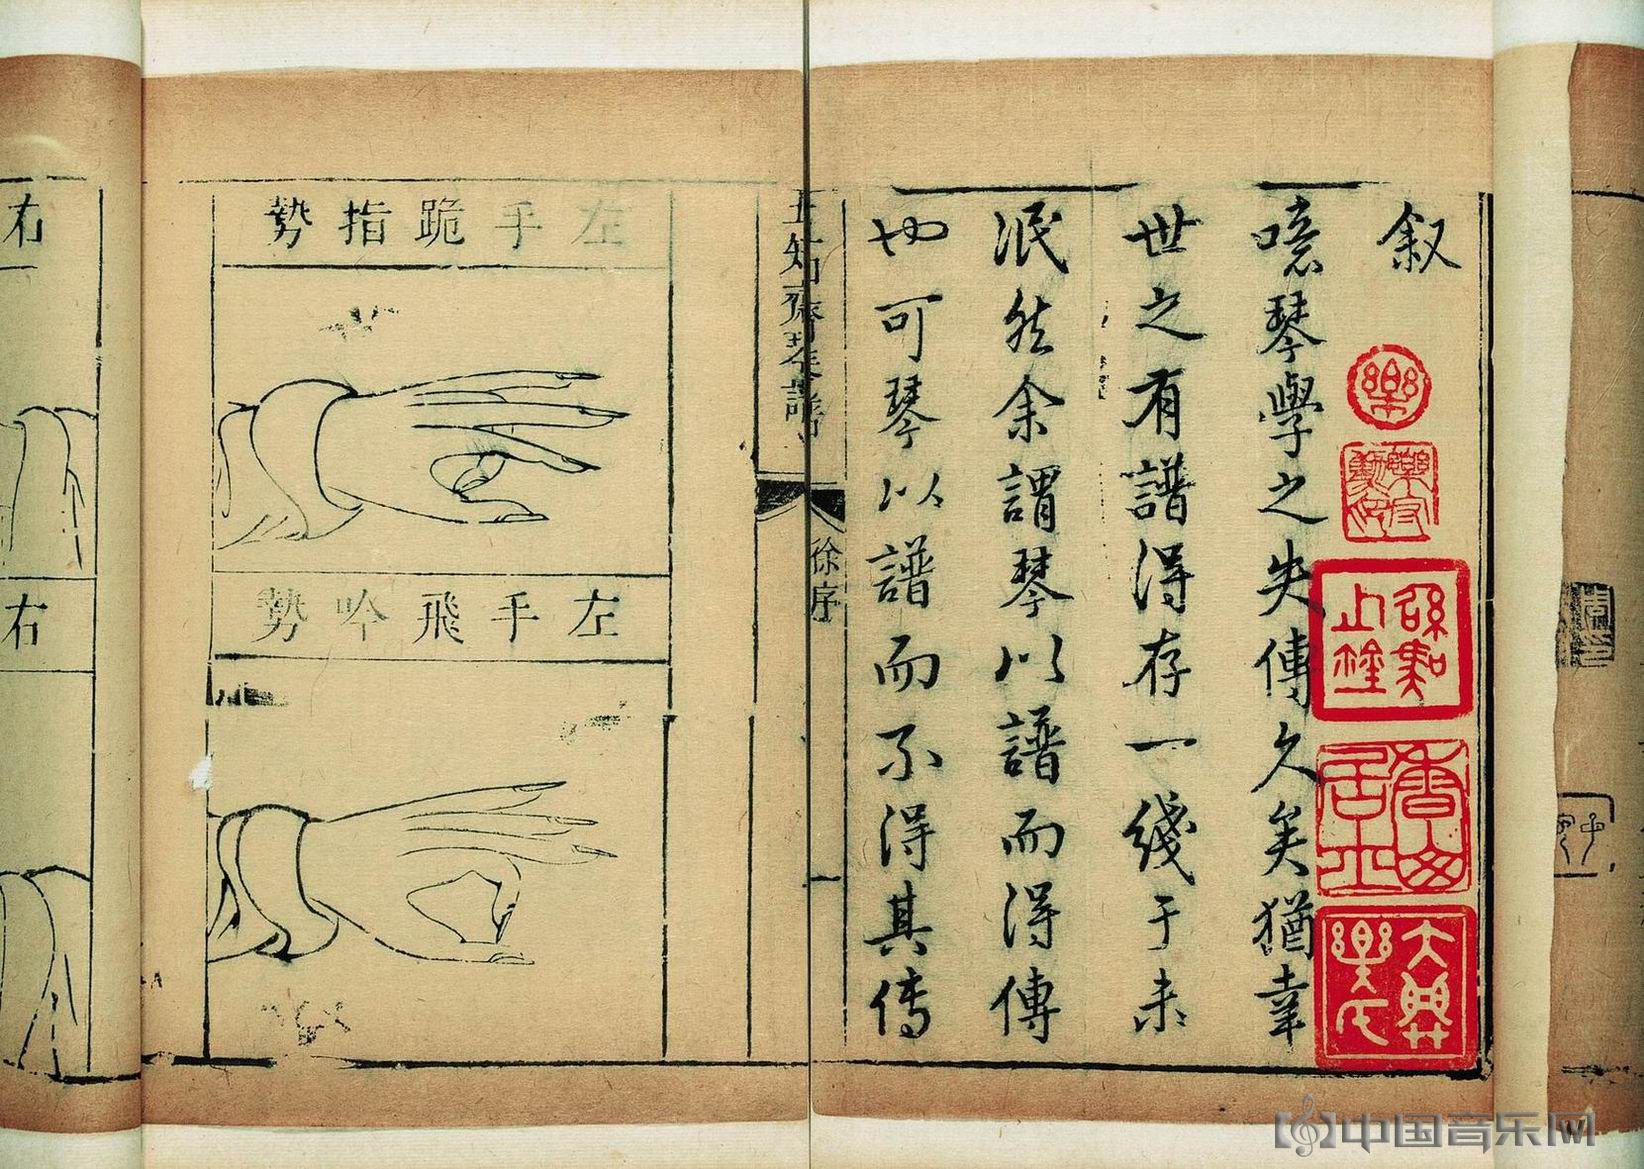 叙
噫琴學之失傳久矣猶幸
世之有譜得存一綫于未
泯然余謂琴以譜而得傳
也可琴以譜而不得其传
樂
大興樂氏
五知齋琴譜
徐序
一
左手跪指勢
左手飛吟勢
右
右
中国音乐网